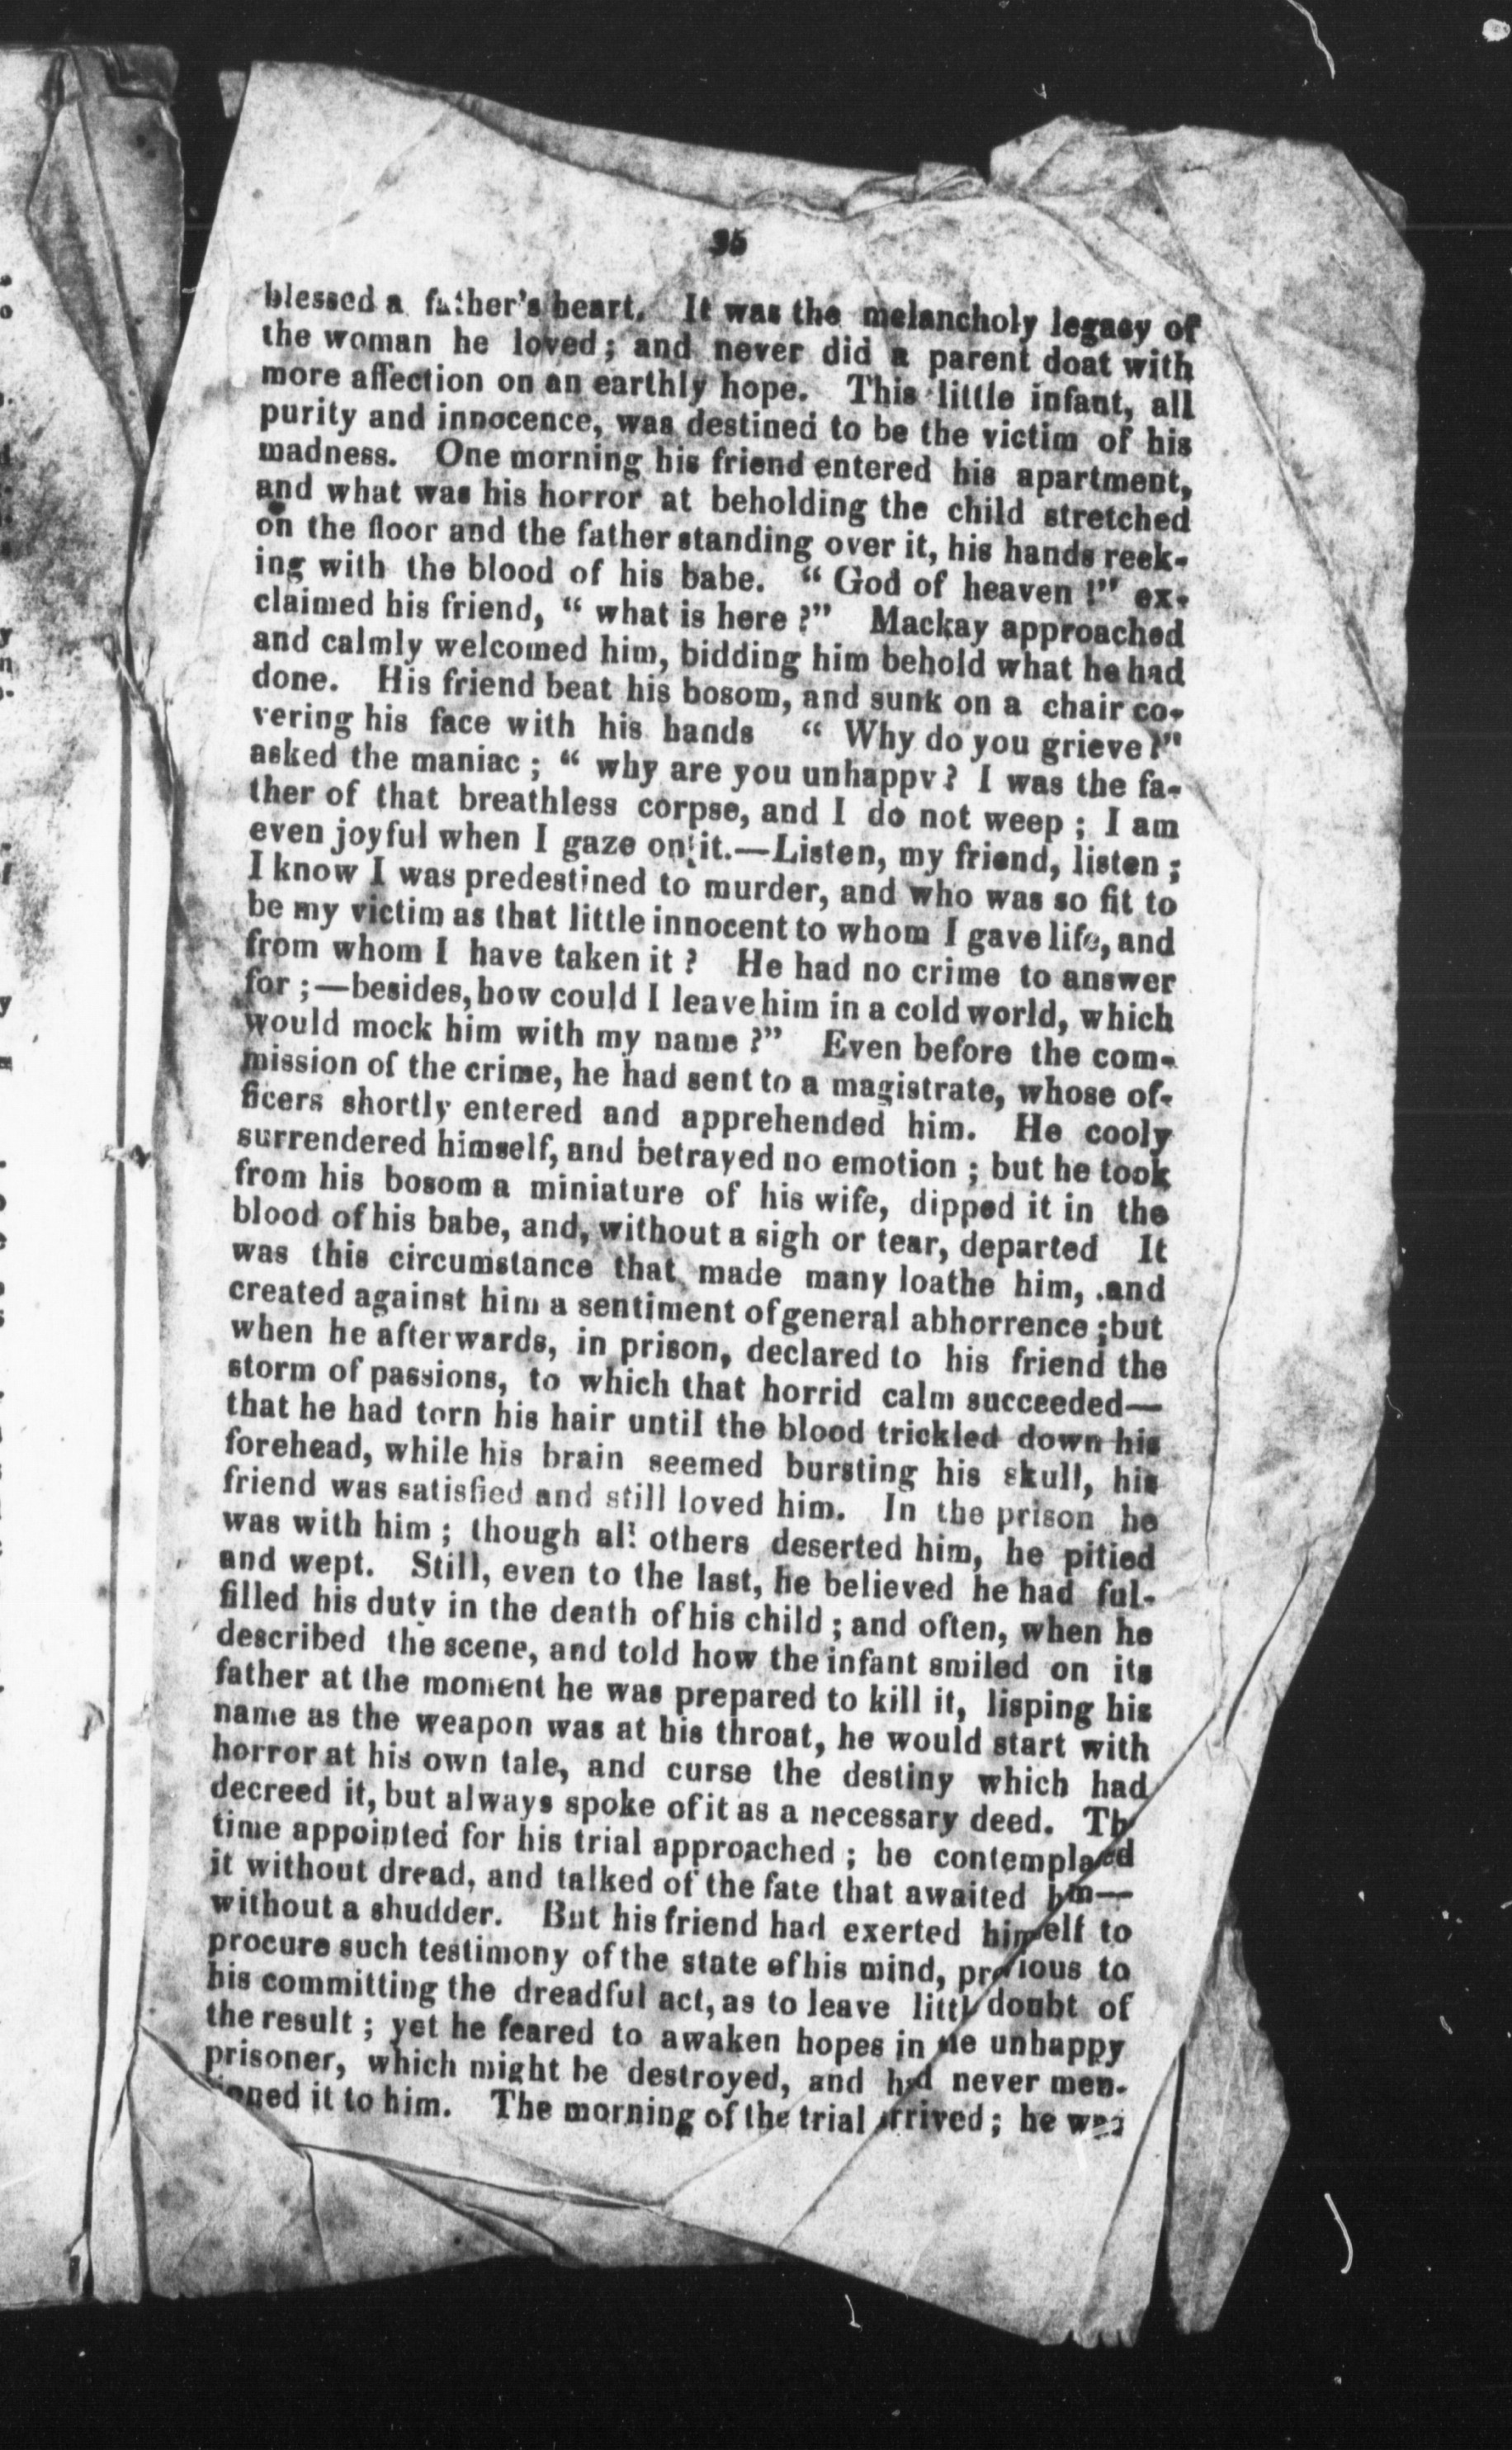 35
blessed a father's heart. It was the melancholy legacy of
the woman he loved; and never did a parent doat with
more affection on an earthly hope. This little infant, all
purity and innocence, was destined to be the victim of his
madness. One morning his friend entered his apartment,
and what was his horror at beholding the child stretched
on the floor and the father standing over it, his hands reek-
ing with the blood of his babe. "God of heaven!" ex-
claimed his friend, "what is here?" Mackay approached
and calmly welcomed him, bidding him behold what he had
done. His friend beat his bosom, and sunk on a chair co-
vering his face with his hands "Why do you grieve?"
asked the maniac; "why are you unhappy? I was the fa-
ther of that breathless corpse, and I do not weep; I am
even joyful when I gaze on it.—Listen, my friend, listen;
I know I was predestined to murder, and who was so fit to
be my victim as that little innocent to whom I gave life, and
from whom I have taken it? He had no crime to answer
for;—besides, how could I leave him in a cold world, which
would mock him with my name?" Even before the com-
mission of the crime, he had sent to a magistrate, whose of-
ficers shortly entered and apprehended him. He cooly
surrendered himself, and betrayed no emotion; but he took
from his bosom a miniature of his wife, dipped it in the
blood of his babe, and, without a sigh or tear, departed It
was this circumstance that made many loathe him, .and
created against him a sentiment of general abhorrence; but
when he afterwards, in prison, declared to his friend the
storm of passions, to which that horrid calm succeeded—
that he had torn his hair until the blood trickled down his
forehead, while his brain seemed bursting his skull, his
friend was satisfied and still loved him. In the prison he
was with him; though all others deserted him, he pitied
and wept. Still, even to the last, he believed he had ful-
filled his duty in the death of his child; and often, when he
described the scene, and told how the infant smiled on its
father at the moment he was prepared to kill it, lisping his
name as the weapon was at his throat, he would start with
horror at his own tale, and curse the destiny which had
decreed it, but always spoke of it as a necessary deed. Th
time appointed for his trial approached; he contemplaed
it without dread, and talked of the fate that awaited him—
without a shudder. But his friend had exerted himself to
procure such testimony of the state of his mind, previous to
his committing the dreadful act, as to leave little doubt of
the result; yet he feared to awaken hopes in the unhappy
prisoner, which might be destroyed, and had never men-
tioned it to him. The morning of the trial arrived; he was